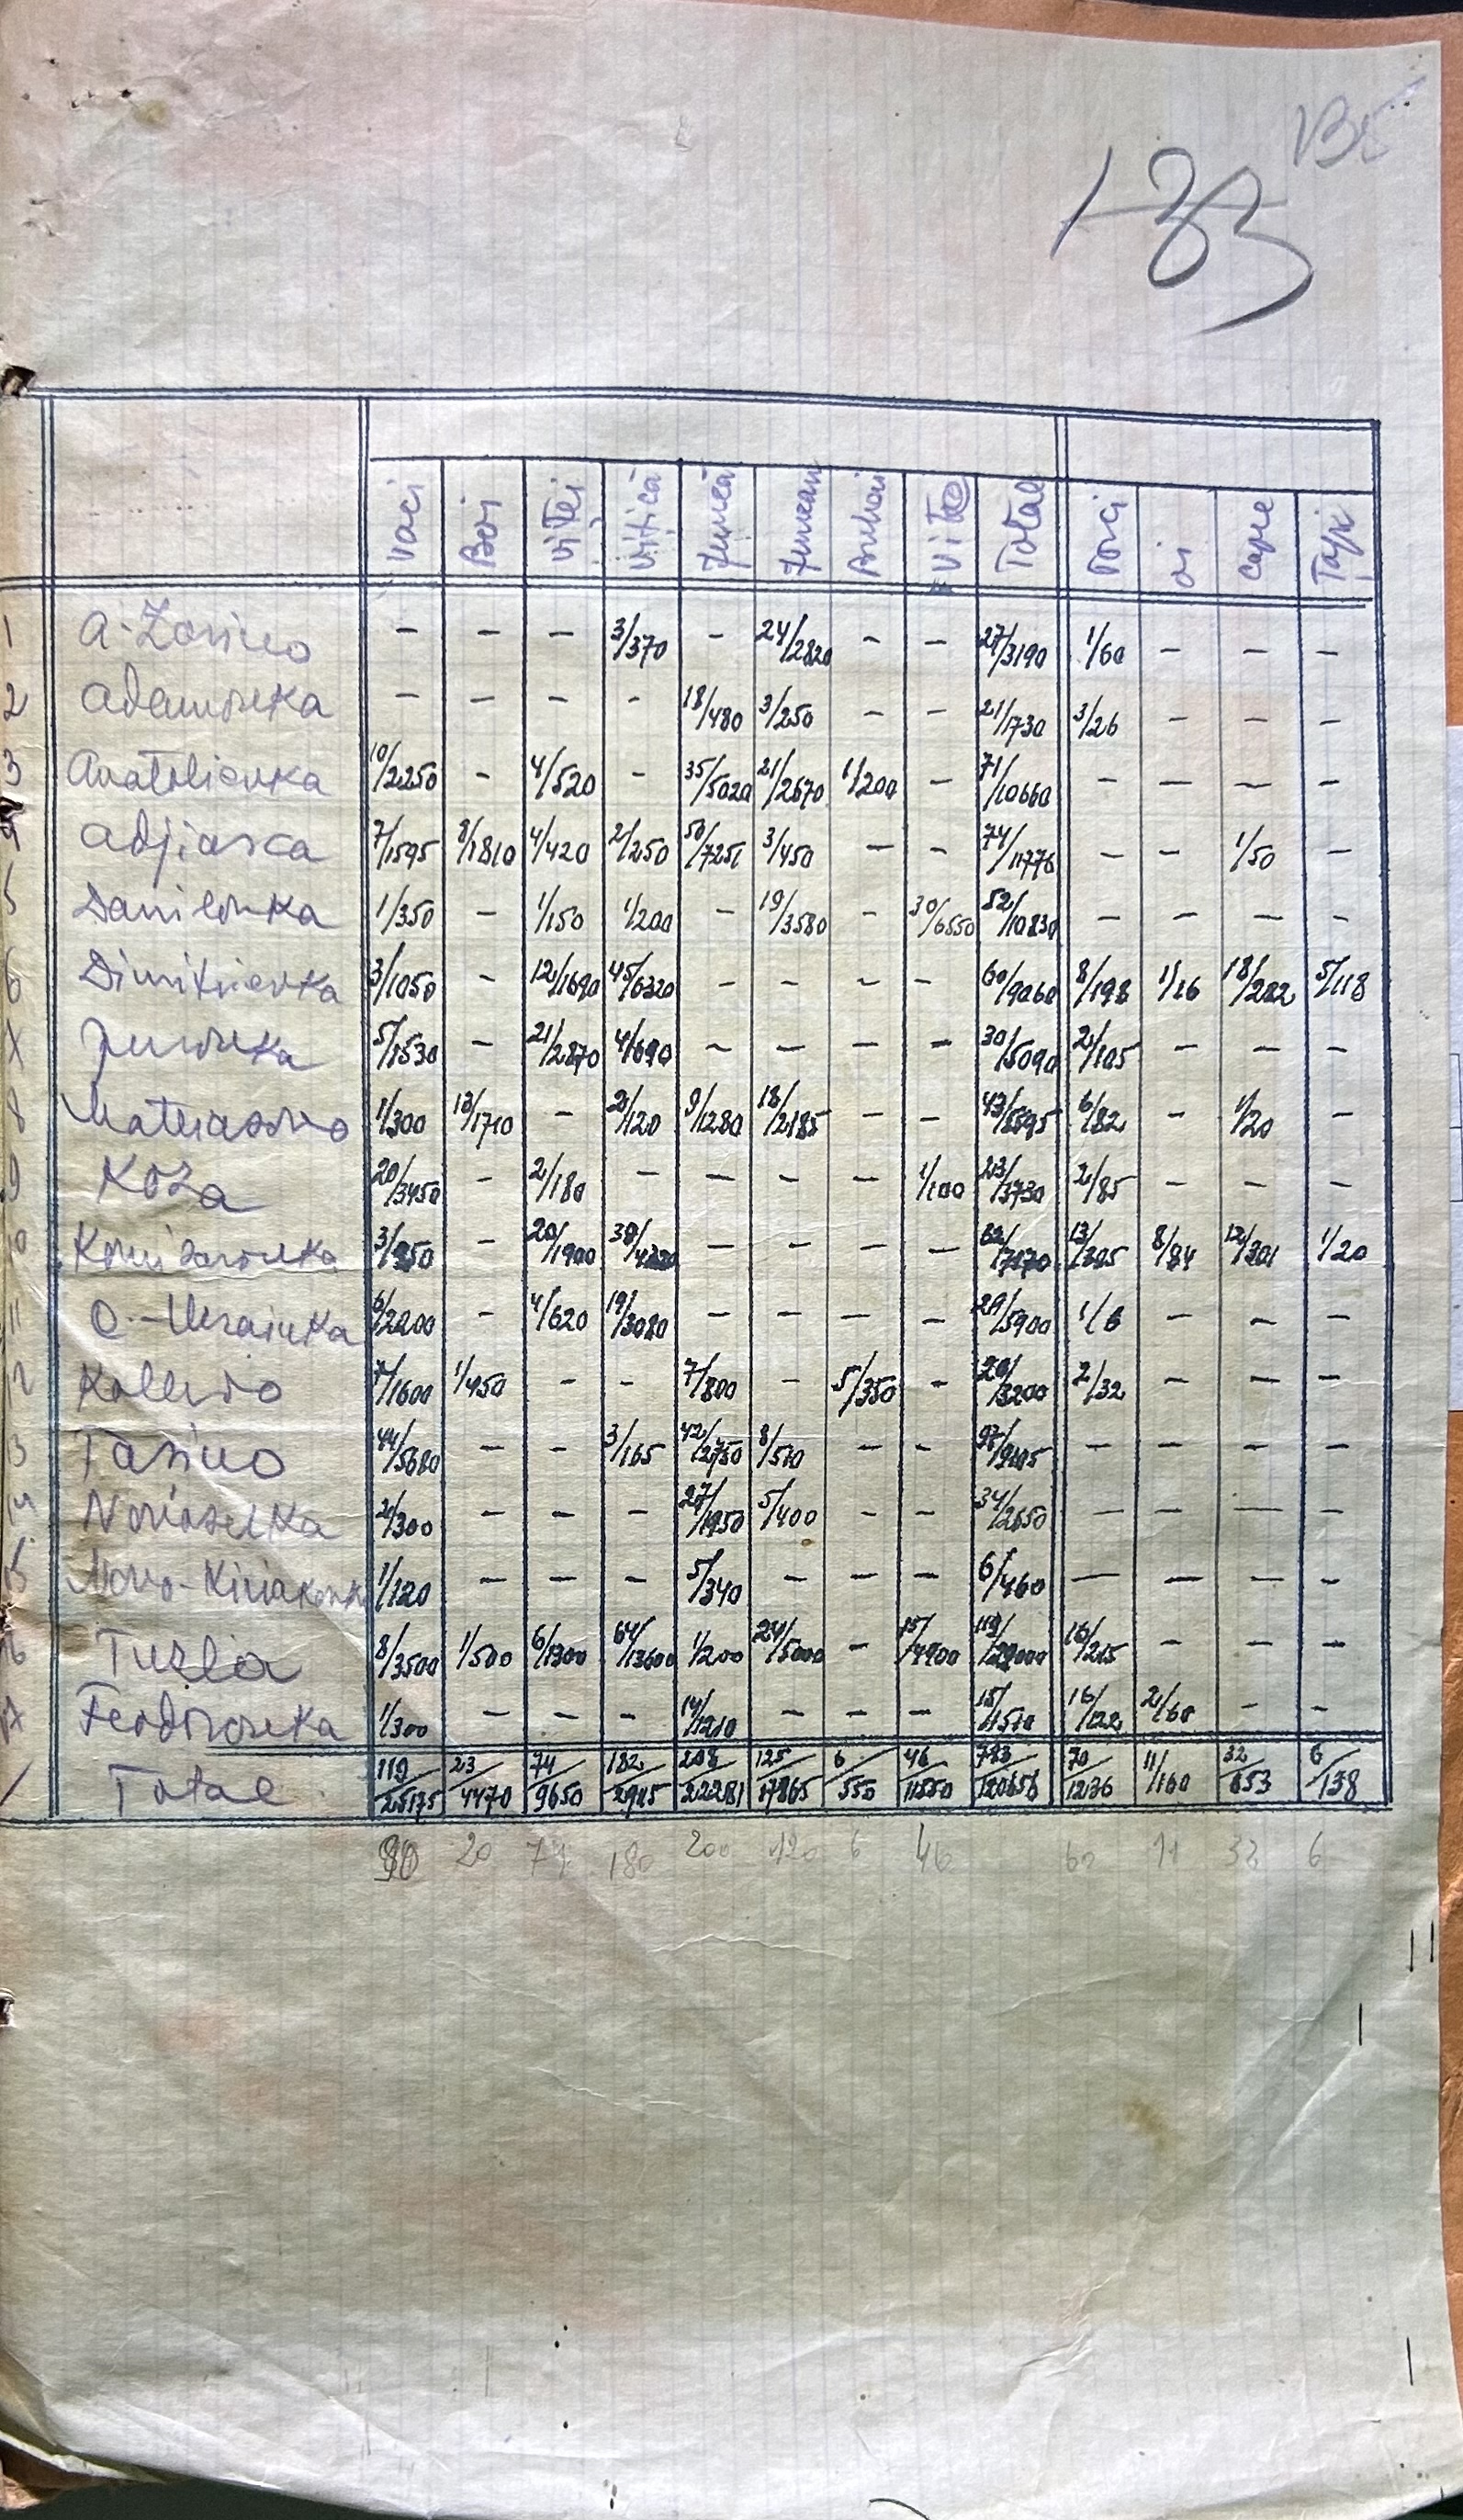 133
Vaci Boi Viței Vițică Junică Juncan Buhai Vite Total Porci Oi Capre Țapi
1 A-Zarino – – – 3/370 – 24/2820 – – 27/3190 1/60 – – –
2 Adamovka – – – – 18/480 3/250 – – 21/1730 3/26 – – –
3 Anatolievka 10/2250 – 4/520 – 35/5020 21/2670 1/200 – 71/10660 – – – –
4 Adjiasca 7/1595 8/1810 4/420 2/250 50/7251 3/450 – – 74/11776 – – 1/50 –
5 Danilovka 1/350 – 1/150 1/200 – 19/3580 – 30/6550 52/10830 – – – –
6 Dimitrievka 3/1050 – 12/1690 45/6320 – – – – 60/9060 8/198 1/16 18/282 5/118
7 5/1530 – 21/2870 4/690 – – – – 30/5090 2/105 – – –
8 1/300 13/1710 – 2/120 9/1280 18/2185 – – 43/5595 6/82 – 1/20 –
9 Koza 20/3450 – 2/180 – – – – 1/100 23/3730 2/85 – – –
10 Komisarovka 3/950 – 20/1900 39/4320 – – – – 62/7170 13/305 8/84 12/301 1/20
11 C.-Ukrainka 6/2200 – 4/620 19/3080 – – – – 29/5900 1/6 – – –
12 7/1600 1/450 – – 7/800 – 5/350 – 20/3200 2/32 – – –
13 Tasino 44/5680 – – 3/165 42/2750 8/510 – – 97/9105 – – – –
14 Novoselka 2/300 – – – 27/1950 5/400 – – 34/2650 – – – –
15 Novo-Kiriakovka 1/120 – – – 5/340 – – – 6/460 – – – –
16 Tuzla 8/3500 1/500 6/1300 64/13600 1/200 24/5000 – 15/4900 119/29000 16/215 – – –
17 Feodorovka 1/300 – – – 14/1210 – – – 15/1510 16/122 2/60 – –
Total 119/25175 23/4470 74/9650 182/2915 208/22281 125/17865 6/550 46/11550 783/120656 70/1236 11/160 32/653 6/138
90 20 74 180 200 120 6 46 60 11 32 6